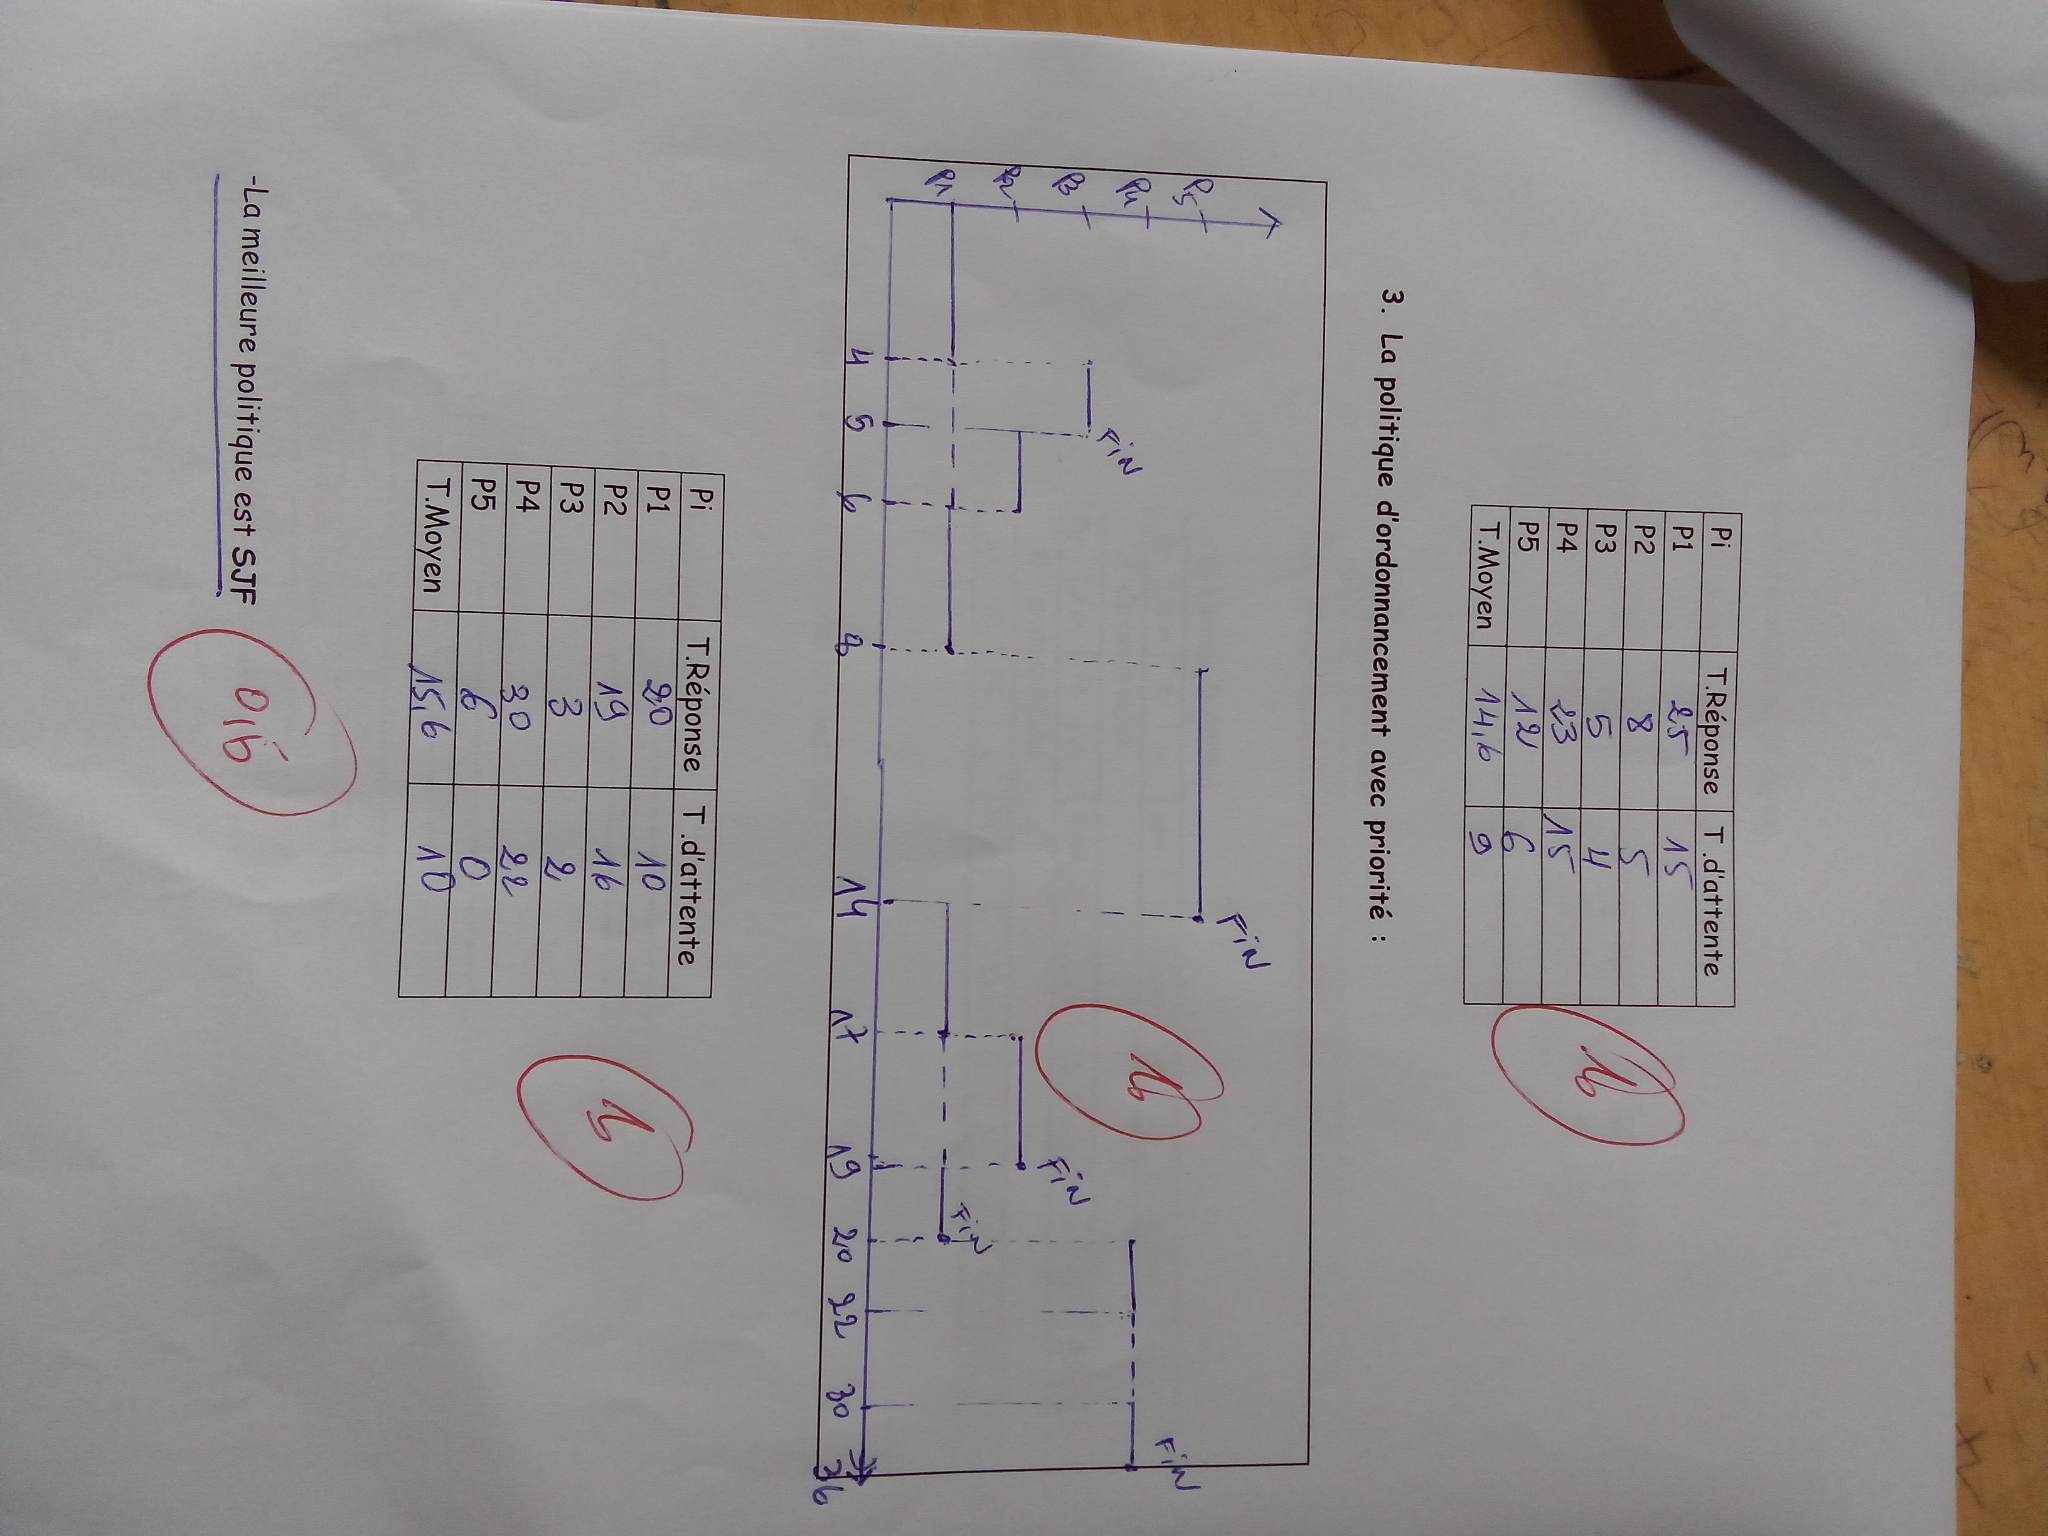 Pi T.Réponse T.d'attente
P1 25 15
P2 8 5
P3 5 4
P4 23 15
P5 12 6
T.Moyen 14,6 9
3. La politique d'ordonnancement avec priorité :
P5
P4
P3
P2
P1
FiN
FiN
FiN
FiN
FiN
4 5 6 8 14 17 19 20 22 30 36
Pi T.Réponse T.d'attente
P1 20 10
P2 19 16
P3 3 2
P4 30 22
P5 6 0
T.Moyen 15,6 10
-La meilleure politique est SJF
0,5